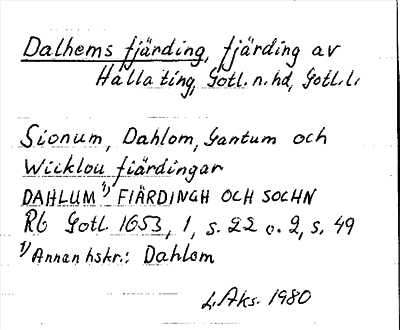 Dalhems fjärding, fjärding av
Halla ting, Gotl. n. hd, Gotl. l.
Sionum, Dahlom, Gantum och
Wicklou fiärdingar
DAHLUM ¹⁾ FIÄRDINGH OCH SOCHN
Rb Gotl 1653, 1, s. 22 o. 2, s. 49
¹⁾ Annan hskr.: Dahlom
L. Aks. 1980